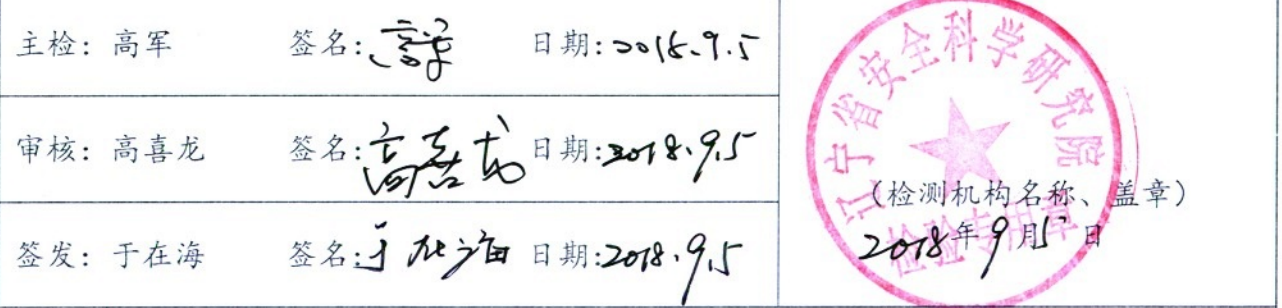 主检：高军 签名：高军 日期：2018.9.5
审核：高喜龙 签名：高喜龙 日期：2018.9.5
签发：于在海 签名：于在海 日期：2018.9.5
辽宁省安全科学研究院
检验专用章
（检测机构名称、盖章）
2018年9月5日